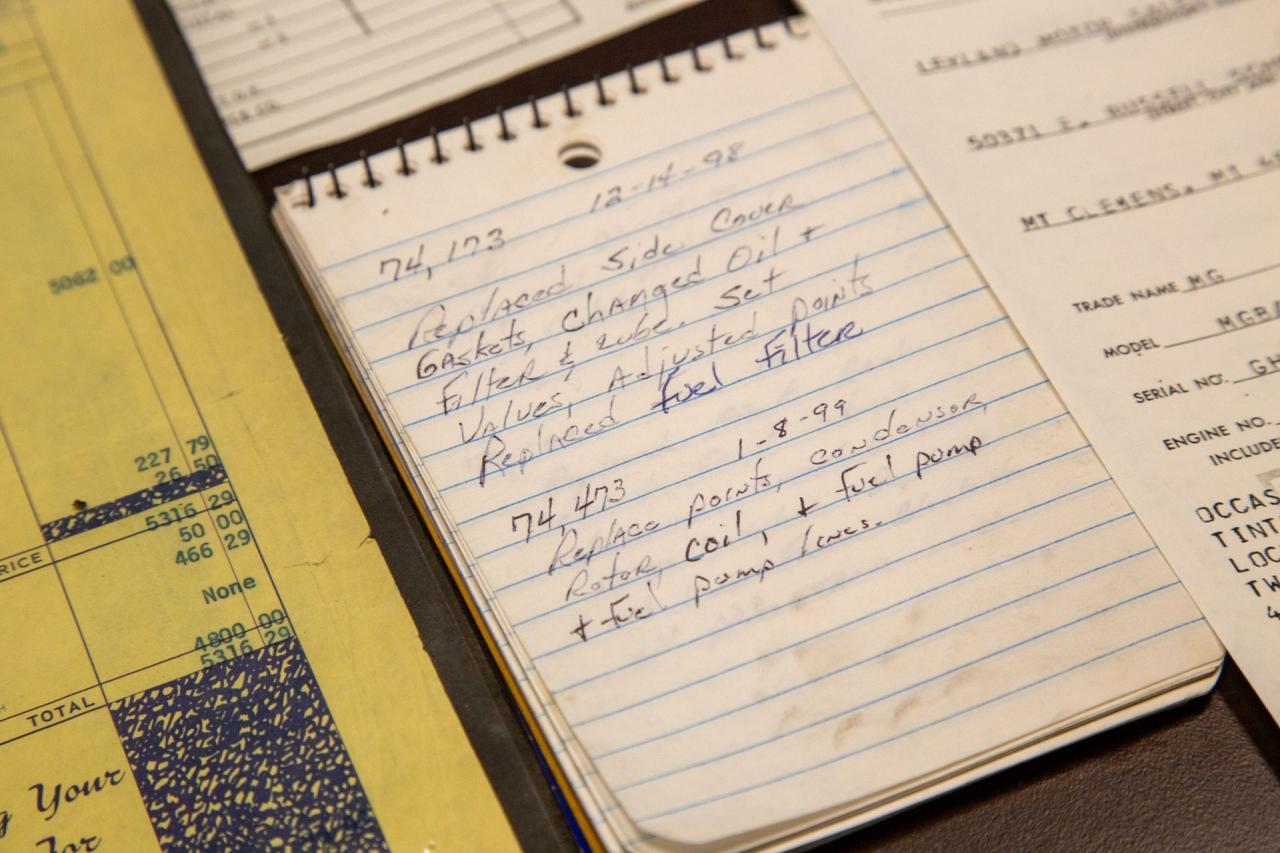 5062 00
227 79
26 50
5316 29
RICE
50 00
466 29
None
4800 00
5316 29
TOTAL
g Your
For
12-14-98
74,173
Replaced Side Cover
Gaskets, Changed Oil +
Filter & Lube. Set
Valves, Adjusted points
Replaced fuel Filter
1-8-99
74,473
Replace points, condensor,
Rotor, coil, + fuel pump
+ fuel pump lines.
LEYLAND MOTOR
50371 E. RUSSELL
MT CLEMENS, MI
TRADE NAME MG
MODEL MGB
SERIAL NO. GH
ENGINE NO.
INCLUDE
OCCAS
TINT
LOC
TW
4